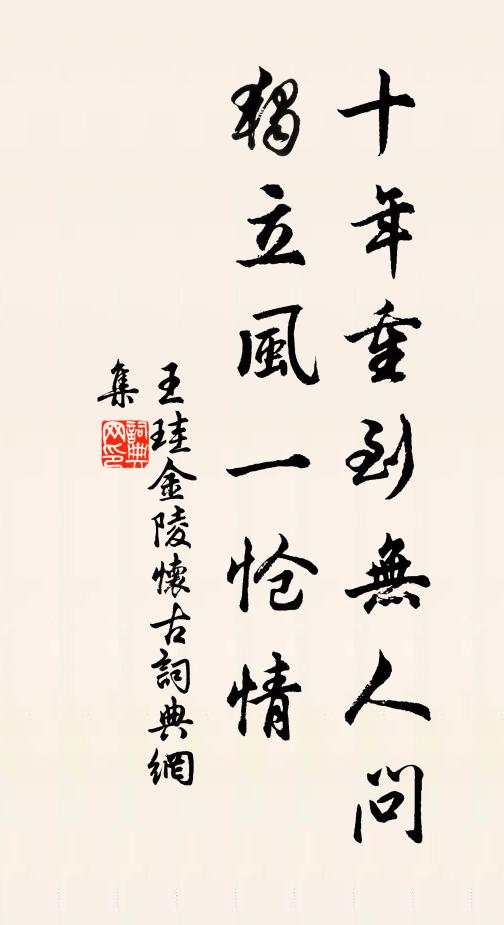 十年重到無人問
獨立風一愴情
王珪金陵懷古詞典網
集
詞典网印